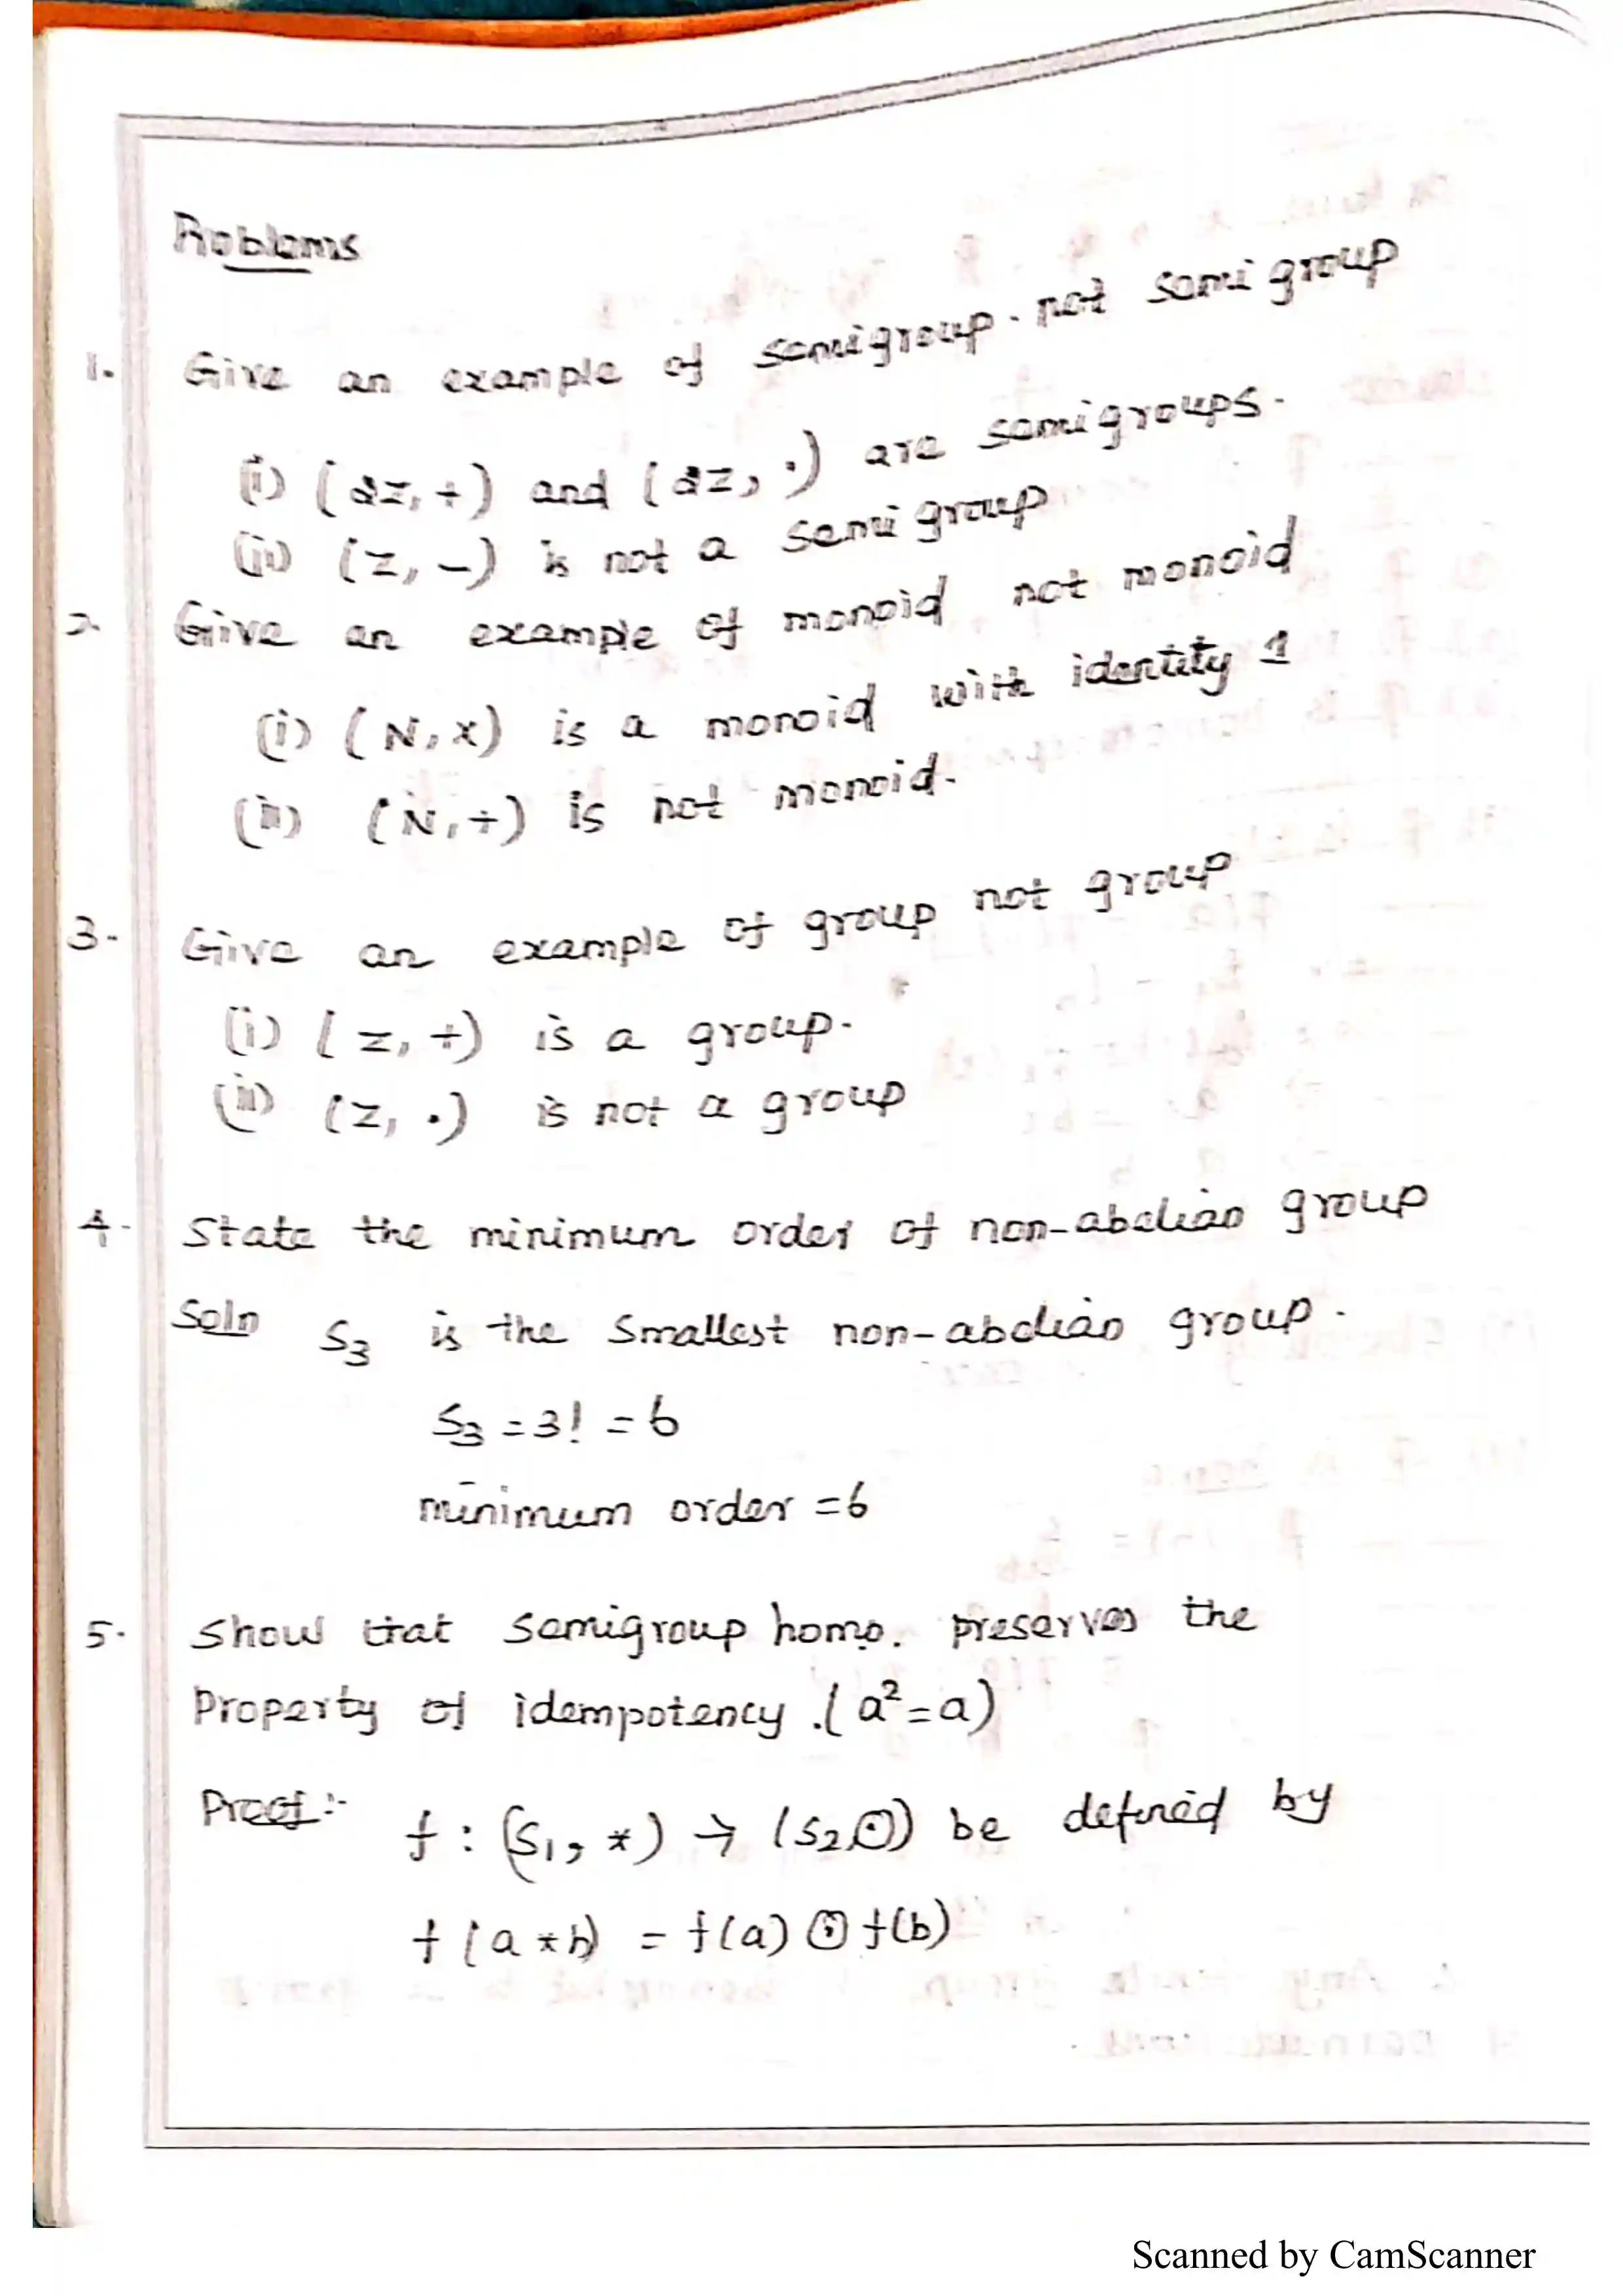 Problems
1. Give an example of semigroup. not semi group
(i) (2Z, +) and (2Z, ·) are semigroups.
(ii) (Z, −) is not a semi group
2. Give an example of monoid not monoid
(i) (N, x) is a monoid with identity 1
(ii) (N, +) is not monoid.
3. Give an example of group not group
(i) (Z, +) is a group.
(ii) (Z, ·) is not a group
4. State the minimum order of non-abelian group
Soln S₃ is the smallest non-abelian group.
S₃ = 3! = 6
minimum order = 6
5. Show that semigroup homo. preserves the
Property of idempotency. (a² = a)
Proof:- f : (S₁, *) → (S₂, ⊙) be defined by
f(a * b) = f(a) ⊙ f(b)
Scanned by CamScanner